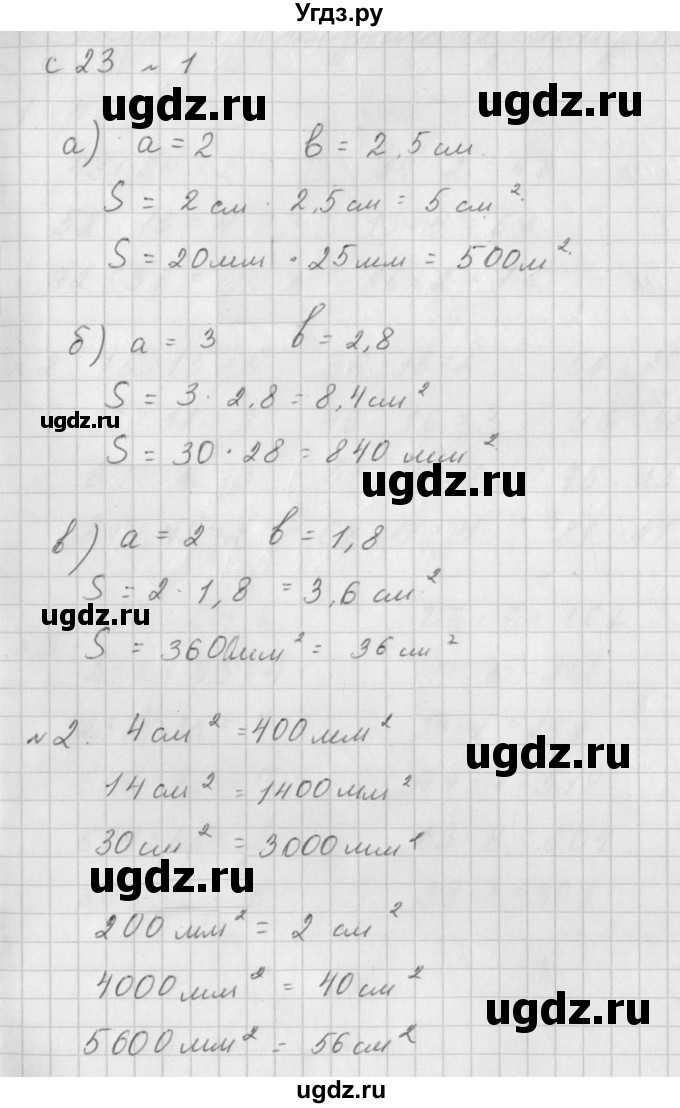 Угдз.ру
с 23 ~ 1
ugdz.ru ugdz.ru
а) а = 2 в = 2,5 см.
S = 2 см · 2,5 см = 5 см².
S = 20мм · 25мм = 500м².
б) а = 3 в = 2,8
S = 3 · 2,8 = 8,4 см²
ugdz.ru
S = 30 · 28 = 840 мм²
ugdz.ru
в) а = 2 в = 1,8
S = 2 · 1,8 = 3,6 см²
ugdz.ru
S = 360мм² = 36 см²
№2. 4 см² = 400 мм²
ugdz.ru
14 см² = 1400 мм²
30 см² = 3000 мм¹
ugdz.ru
200 мм² = 2 см²
4000 мм² = 40 см²
ugdz.ru
5600 мм² = 56 см²
ugdz.ru